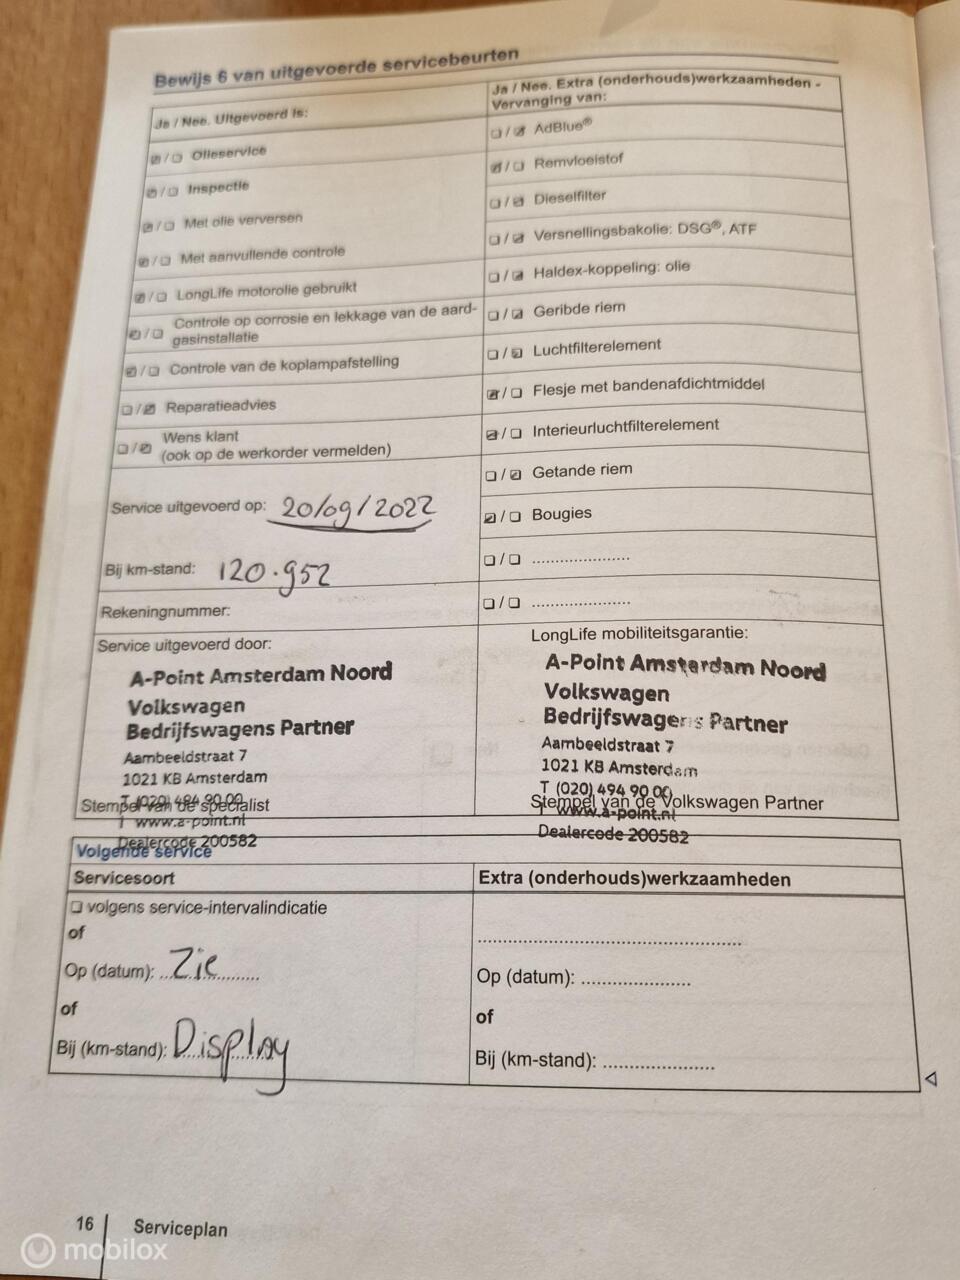 Bewijs 6 van uitgevoerde servicebeurten
Ja / Nee. Uitgevoerd is:
☑ / ☐ Olieservice
☑ / ☐ Inspectie
☑ / ☐ Met olie verversen
☑ / ☐ Met aanvullende controle
☑ / ☐ LongLife motorolie gebruikt
☑ / ☐ Controle op corrosie en lekkage van de aard-
gasinstallatie
☑ / ☐ Controle van de koplampafstelling
☐ / ☑ Reparatieadvies
☐ / ☑ Wens klant
(ook op de werkorder vermelden)
Service uitgevoerd op: 20/09/2022
Bij km-stand: 120.952
Rekeningnummer:
Service uitgevoerd door:
A-Point Amsterdam Noord
Volkswagen
Bedrijfswagens Partner
Aambeeldstraat 7
1021 KB Amsterdam
T (020) 494 90 00
Stempel van de specialist
I www.a-point.nl
Dealercode 200582
Ja / Nee. Extra (onderhouds)werkzaamheden -
Vervanging van:
☐ / ☑ AdBlue®
☑ / ☐ Remvloeistof
☐ / ☑ Dieselfilter
☐ / ☑ Versnellingsbakolie: DSG®, ATF
☐ / ☑ Haldex-koppeling: olie
☐ / ☑ Geribde riem
☐ / ☑ Luchtfilterelement
☑ / ☐ Flesje met bandenafdichtmiddel
☑ / ☐ Interieurluchtfilterelement
☐ / ☑ Getande riem
☑ / ☐ Bougies
☐ / ☐ ....................
☐ / ☐ ....................
LongLife mobiliteitsgarantie:
A-Point Amsterdam Noord
Volkswagen
Bedrijfswagens Partner
Aambeeldstraat 7
1021 KB Amsterdam
T (020) 494 90 00
Stempel van de Volkswagen Partner
I www.a-point.nl
Dealercode 200582
Volgende service
Servicesoort
☐ volgens service-intervalindicatie
of
Op (datum): Zie
of
Bij (km-stand): Display
Extra (onderhouds)werkzaamheden
..................................................
Op (datum): .....................
of
Bij (km-stand): .....................
16 Serviceplan
mobilox